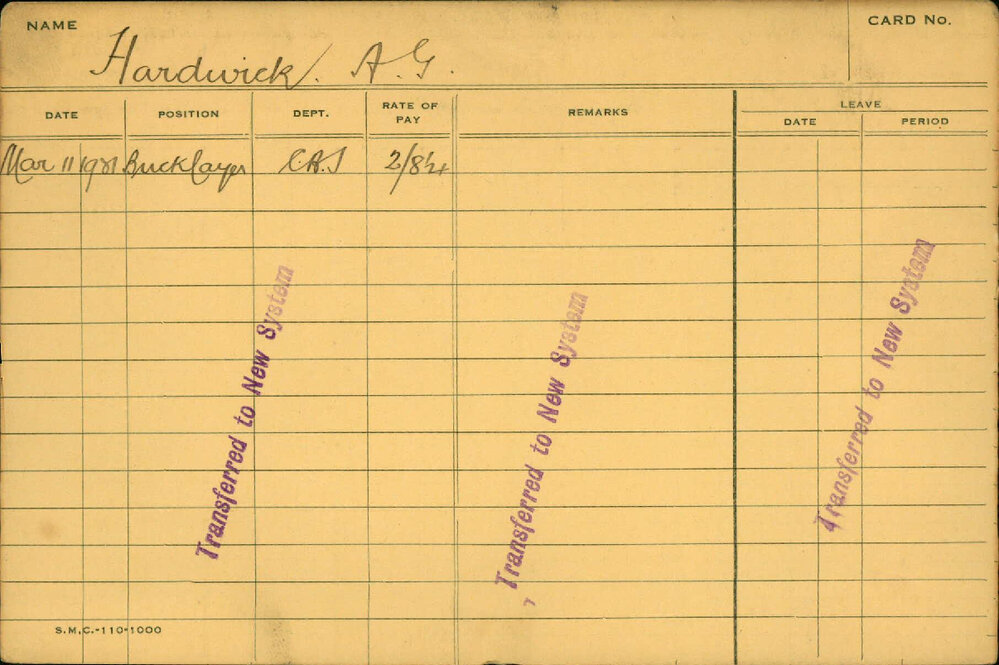 NAME
Hardwick. A. G.
CARD No.
DATE
POSITION
DEPT.
RATE OF PAY
REMARKS
LEAVE
DATE
PERIOD
Mar 11 Bricklayer 2/8¼
Transferred to New System
Transferred to New System
Transferred to New System
S.M.C.-110-1000